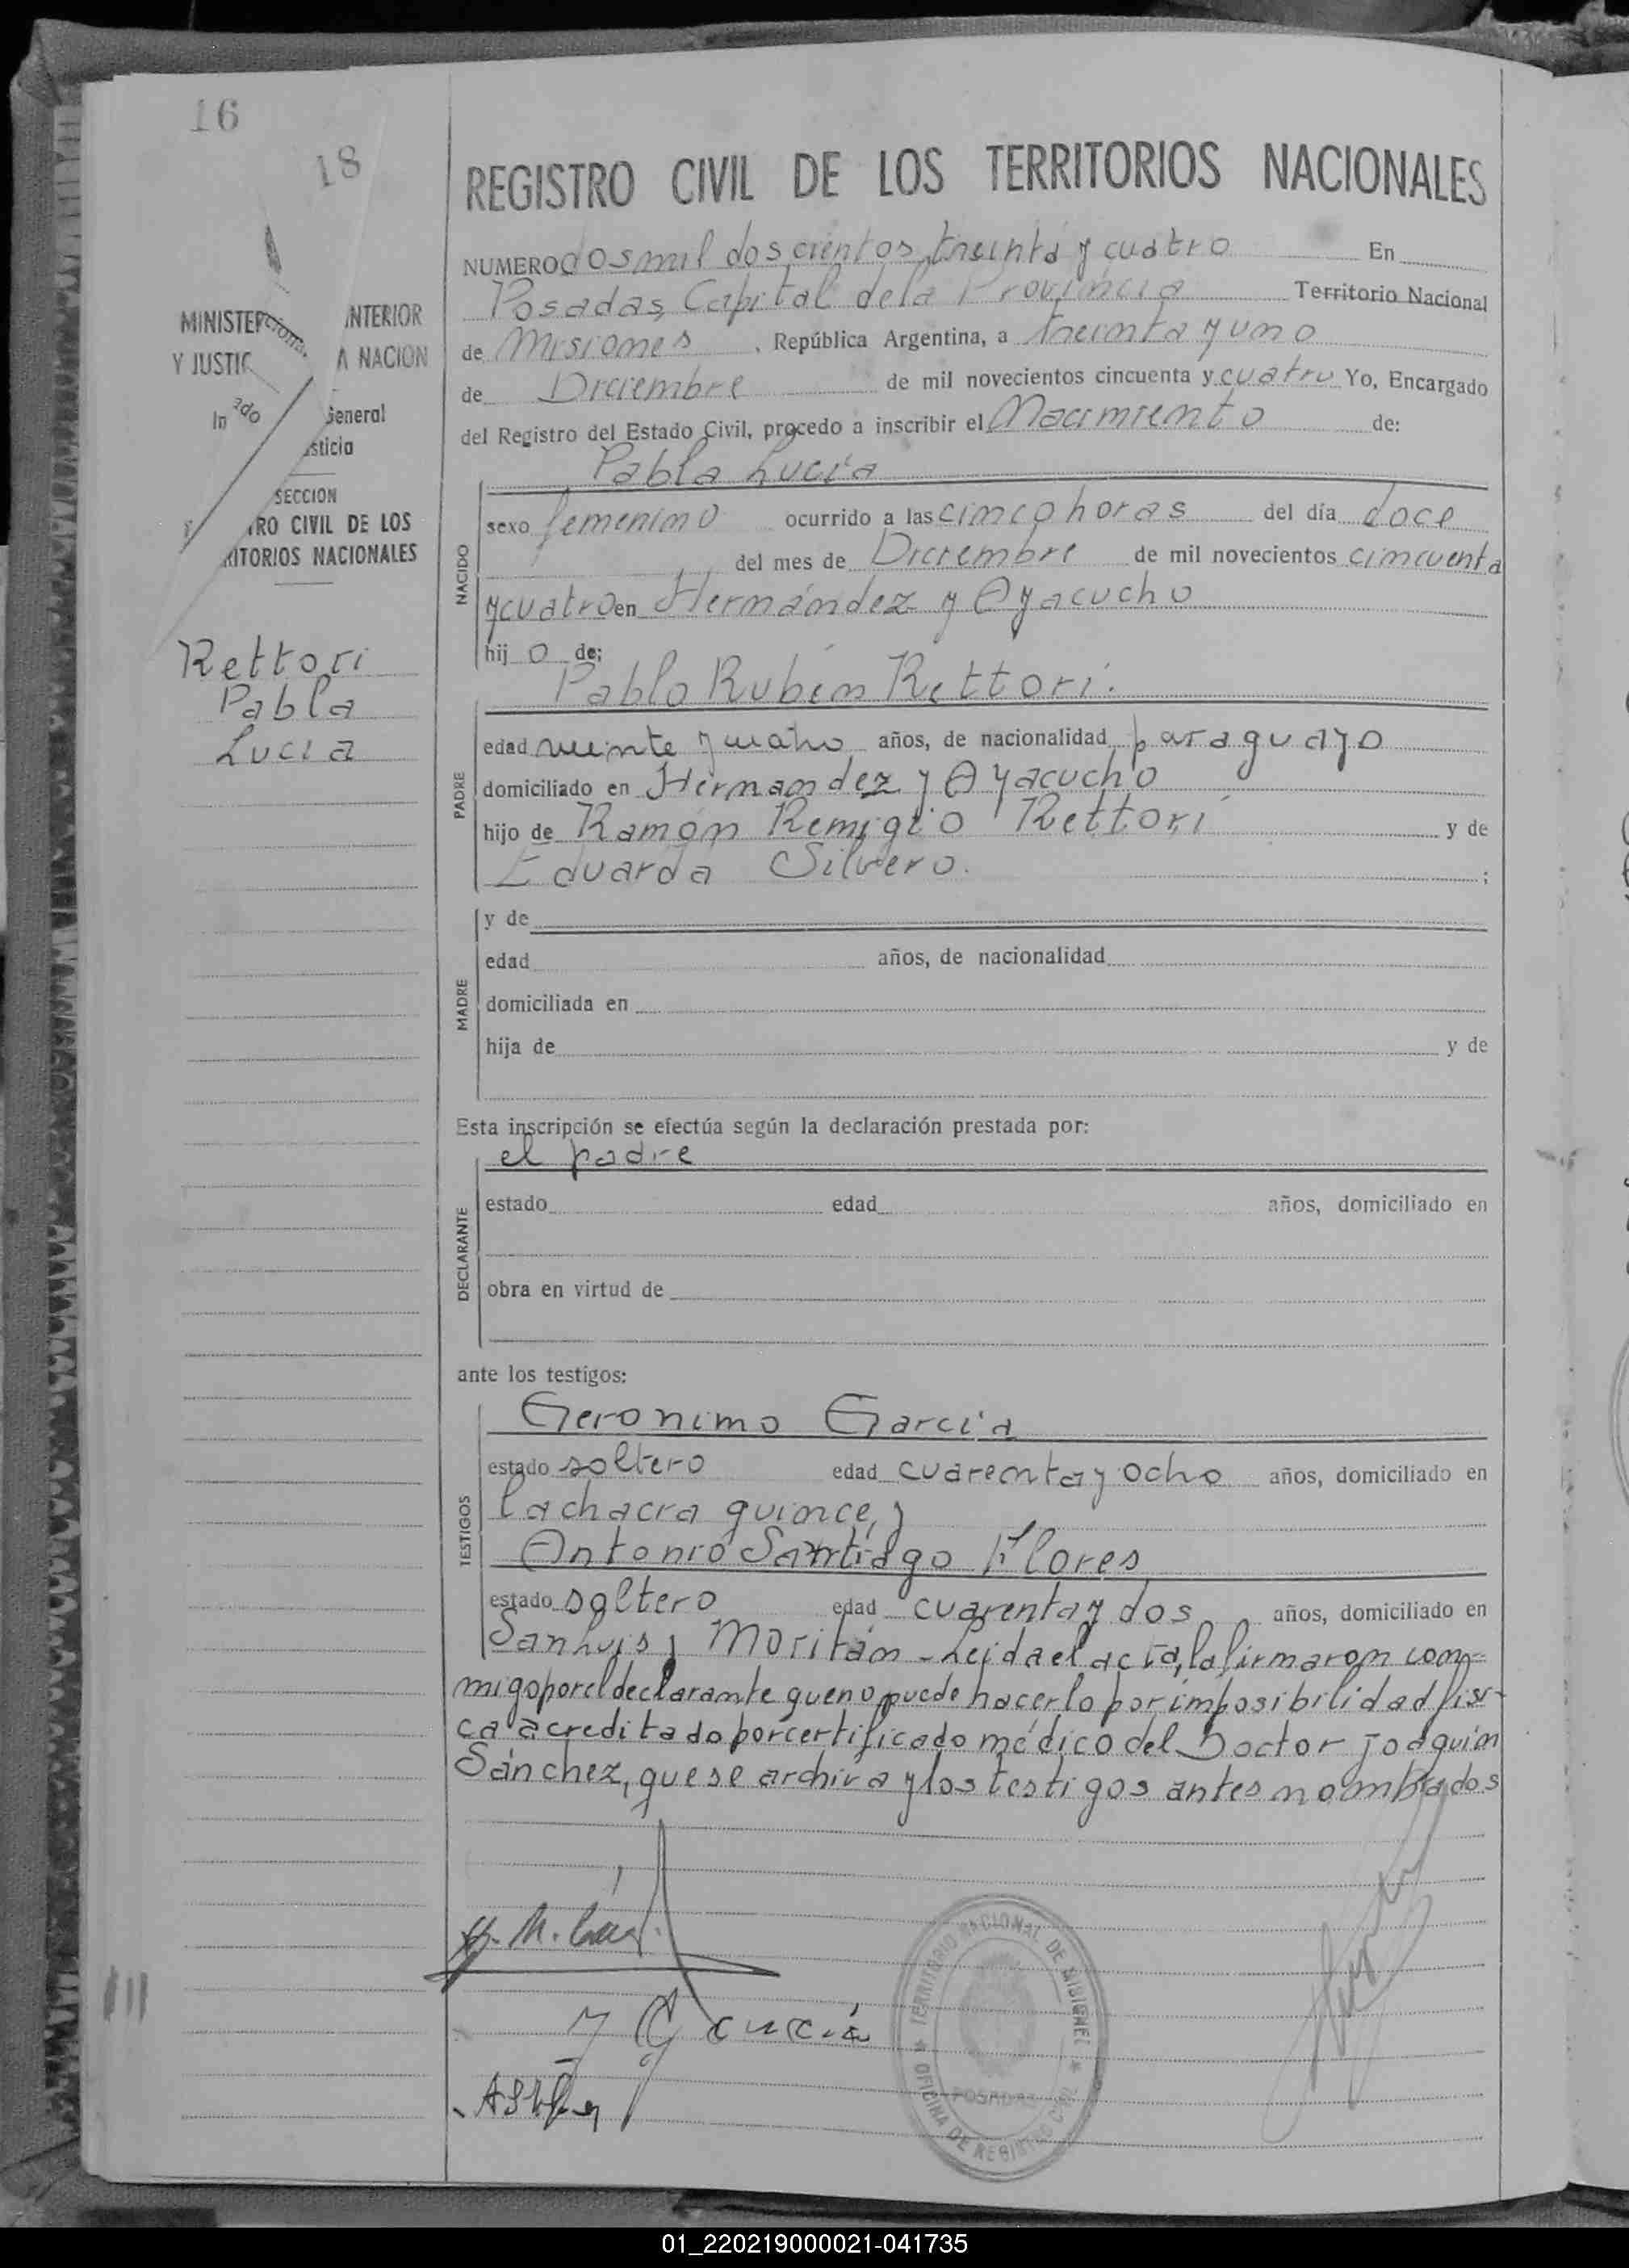 16
18
REGISTRO CIVIL DE LOS TERRITORIOS NACIONALES
NUMERO dos mil doscientos treinta y cuatro En
Posadas, Capital de la Provincia Territorio Nacional
de Misiones, República Argentina, a treinta y uno
de Diciembre de mil novecientos cincuenta y cuatro Yo, Encargado
del Registro del Estado Civil, procedo a inscribir el Nacimiento de:
MINISTE INTERIOR
Y JUSTIC A NACION
In ado General
sticia
SECCION
RO CIVIL DE LOS
RITORIOS NACIONALES
Rettori
Pabla
Lucia
NACIDO
Pabla Lucía
sexo femenino ocurrido a las cinco horas del día doce
del mes de Diciembre de mil novecientos cincuenta
y cuatro en Hernández y Ayacucho
hij o de:
PADRE
Pablo Rubén Rettori.
edad veinte y cuatro años, de nacionalidad paraguayo
domiciliado en Hernandez y Ayacucho
hijo de Ramón Remigio Rettori y de
Eduarda Silvero. ;
MADRE
y de
edad años, de nacionalidad
domiciliada en
hija de y de
Esta inscripción se efectúa según la declaración prestada por:
DECLARANTE
el padre
estado edad años, domiciliado en
obra en virtud de
ante los testigos:
TESTIGOS
Geronimo García
estado soltero edad cuarenta y ocho años, domiciliado en
la chacra quince, y
Antonio Santiago Flores
estado soltero edad cuarenta y dos años, domiciliado en
San Luis y Moritán - Leida el acta, la firmaron con=
migo por el declarante que no puede hacerlo por imposibilidad físi-
ca acreditado por certificado médico del Doctor Joaquín
Sánchez, que se archiva y los testigos antes nombrados
García
TERRITORIO NACIONAL DE MISIONES
POSADAS
OFICINA DE REGISTRO CIVIL
01_220219000021-041735